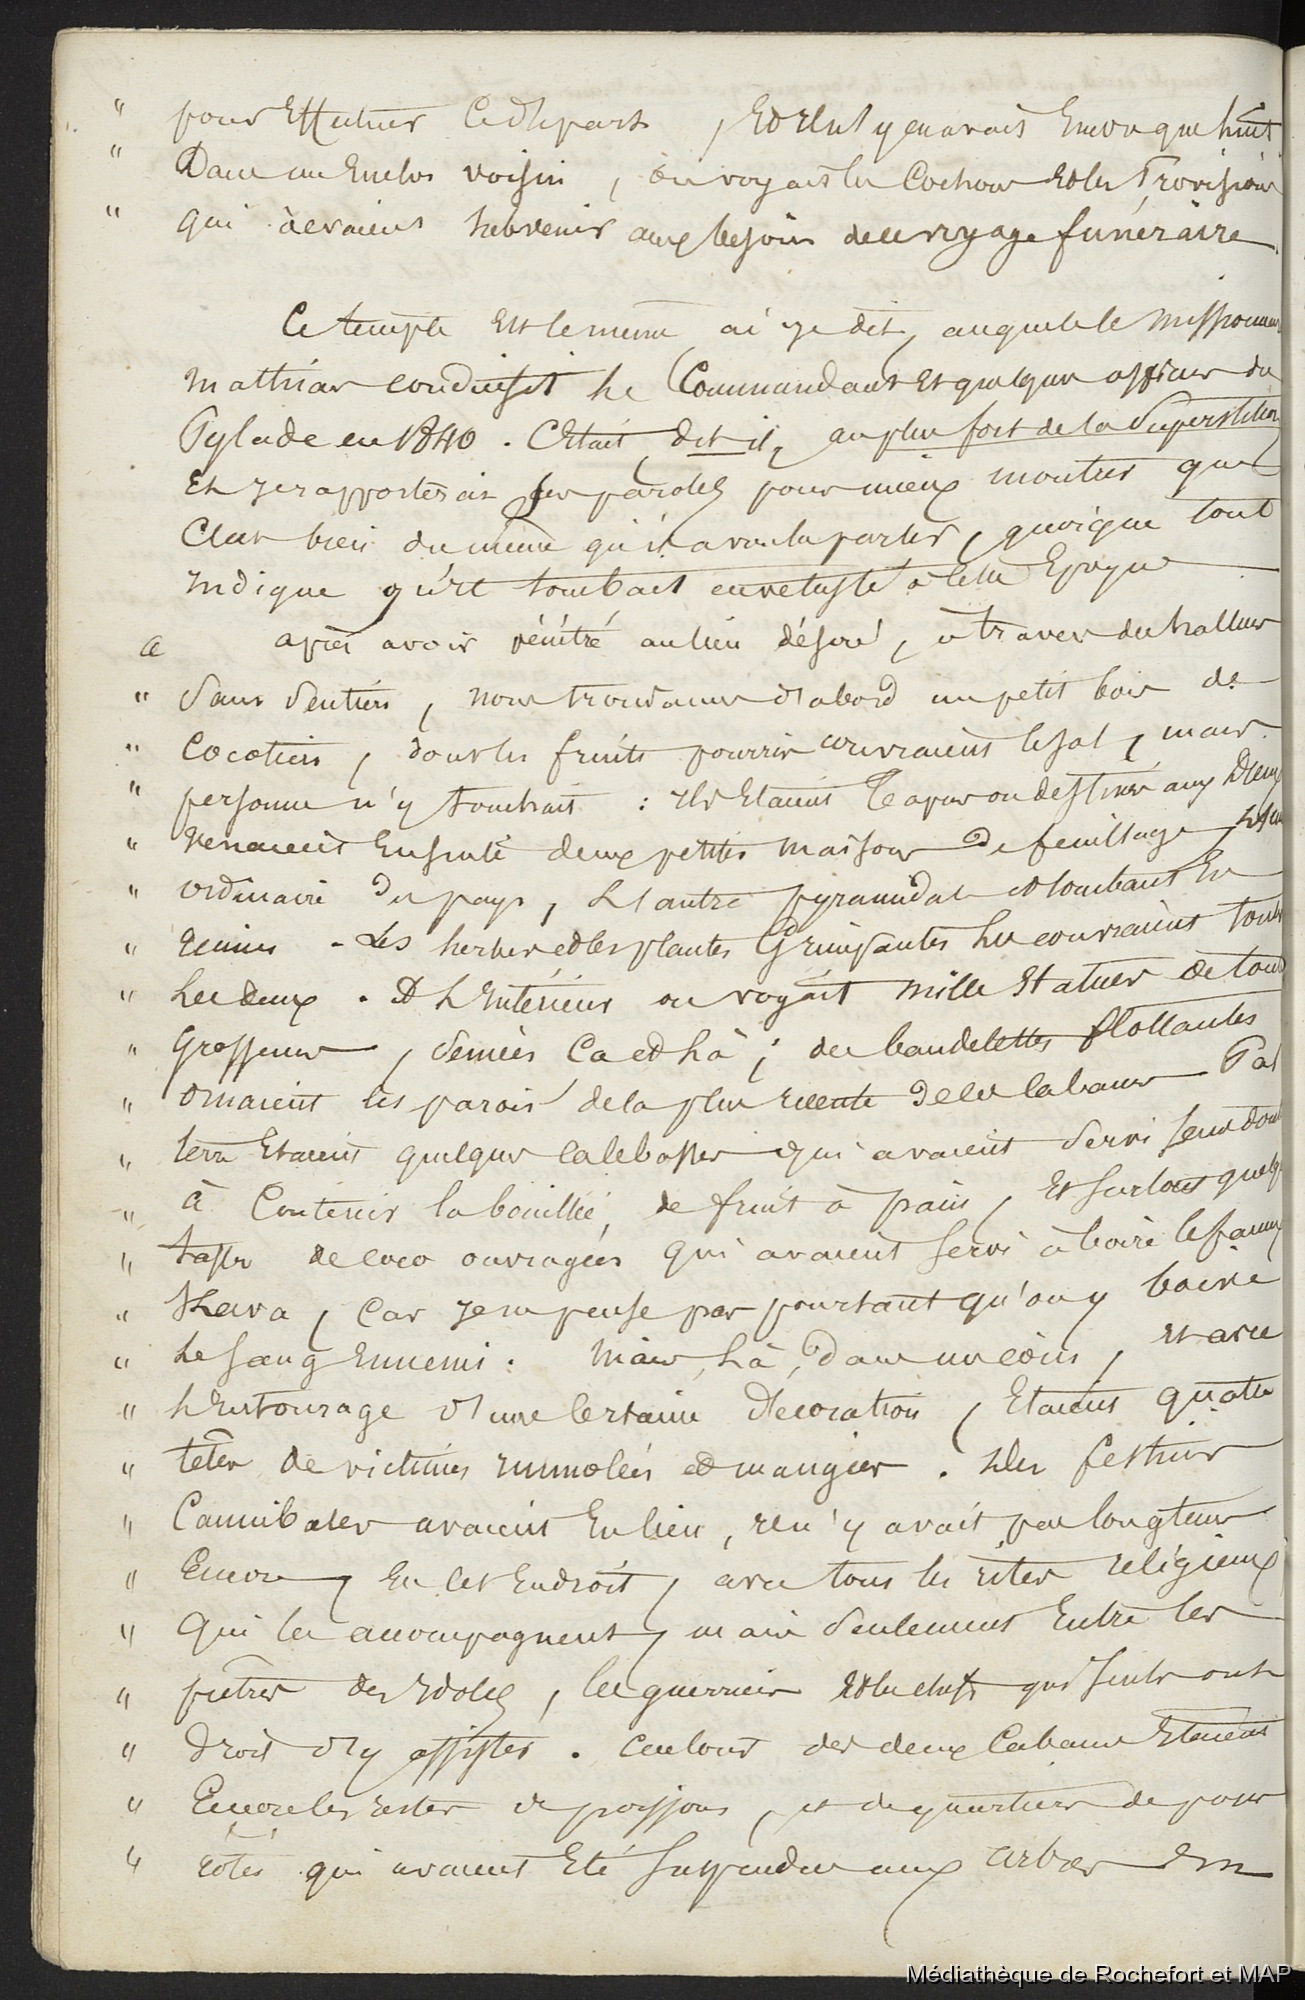 " pour Effectuer Ce départ , Et il n'y en avait Encore que huit
" Dans un Enclos voisin , on voyait les Cochons Et les Provisions
" qui devaient subvenir aux besoins de ce voyage funéraire
Ce temple Est le même , ai-je dit, auquel le missionnaire
Mathias conduisit le Commandant et quelques officiers du
Pylade en 1840 . C'était, dit-il, au plus fort de la Superstition
Et je rapporterai ses paroles pour mieux montrer que
C'est bien du même qu'il a voulu parler, quoique tout
indique qu'il tombait en vetusté à cette Epoque
" après avoir pénétré au lieu désiré , à travers des halliers
" sans sentiers , nous trouvames d'abord un petit bois de
" Cocotiers , dont les fruits pourris couvraient le sol , mais
" personne n'y touchait : ils Etaient Tapu ou destinés aux Dieux
" venaient Ensuite deux petites maisons de feuillage,
" ordinaire du pays, L'autre pyramidale et tombant En
" ruines . Les herbes et les plantes Grimpantes les couvraient toutes
" les deux . A l'Intérieur on voyait mille Statues de toute
" Grosseur , semées Ca et Là ; des bandelettes flottantes
" ornaient les parois de la plus récente de ces cabanes Par
" terre Etaient quelques calebasses qui avaient servi sans doute
" à Contenir la bouillie de fruit à pain , Et surtout quelques
" tasses de coco ouvragées qui avaient servi à boire le fameux
" Kava , Car je ne pense pas pourtant qu'on y boive
" le sang Ennemi . Mais, Là, dans un coin , et avec
" L'Entourage d'une Certaine Décoration , Etaient quatre
" têtes de victimes immolées et mangées . Des festins
" Cannibales avaient Eu lieu , il n'y avait pas longtems
" Encore , En cet Endroit , avec tous les rites religieux
" Qui les accompagnent , mais seulement Entre les
" prêtres des Idoles , les guerriers Et les chefs qui seuls ont
" droit d'y assister . autour des deux Cabanes Etaient
" Encore les restes de poissons , et de quartiers de porc
" rôtés qui avaient Eté suspendus aux arbres En
Médiathèque de Rochefort et MAP